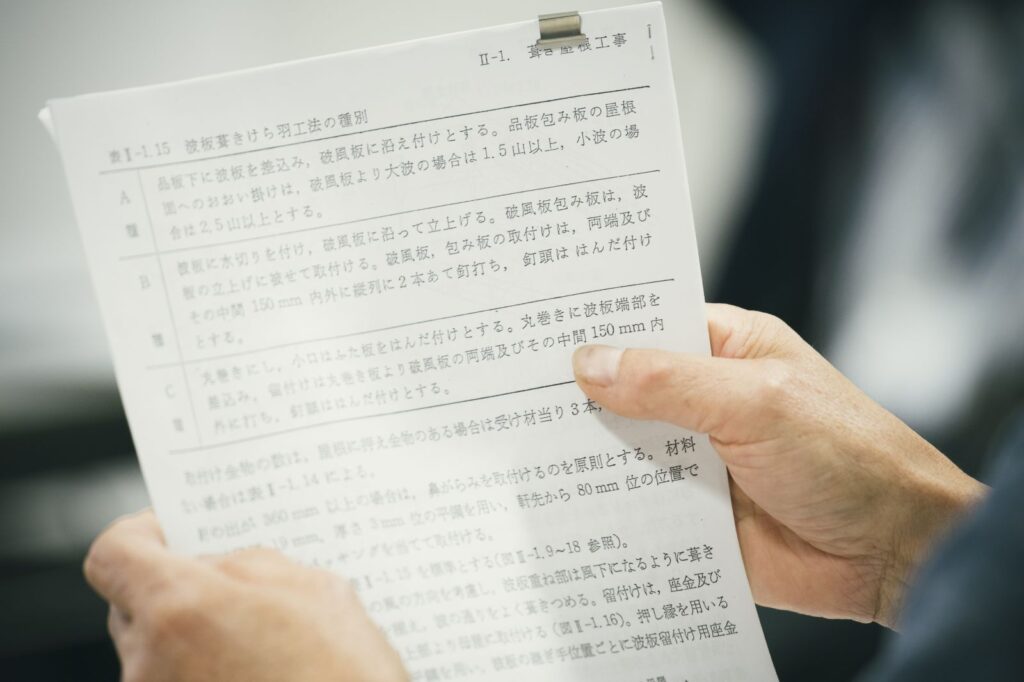 II-1. 葺き屋根工事
表II-1.15 波板葺きけら羽工法の種別
A種
品板下に波板を差込み,破風板に沿え付けとする。品板包み板の屋根
面へのおおい掛けは,破風板より大波の場合は1.5山以上,小波の場
合は2.5山以上とする。
B種
波板に水切りを付け,破風板に沿って立上げる。破風板包み板は,波
板の立上げに被せて取付ける。破風板,包み板の取付けは,両端及び
その中間150mm内外に縦列に2本あて釘打ち,釘頭は はんだ付け
とする。
C種
丸巻きにし,小口はふた板をはんだ付けとする。丸巻きに波板端部を
差込み,留付けは丸巻き板より破風板の両端及びその中間150mm内
外に釘打ち,釘頭ははんだ付けとする。
取付け金物の数は,屋根に押え金物のある場合は受け材当り3本,
ない場合は表II-1.14による。
軒の出が360mm以上の場合は,鼻がらみを取付けるのを原則とする。材料
19mm,厚さ3mm位の平鋼を用い,軒先から80mm位の位置で
を当てて取付ける。
II-1.15を標準とする(図II-1.9~18 参照)。
の風の方向を考慮し,波板重ね部は風下になるように葺き
揃え,波の通りをよく葺きつめる。留付けは,座金及び
上部より母屋に取付ける(図II-1.16)。押し縁を用いる
を用い,波板の継ぎ手位置ごとに波板留付け用座金